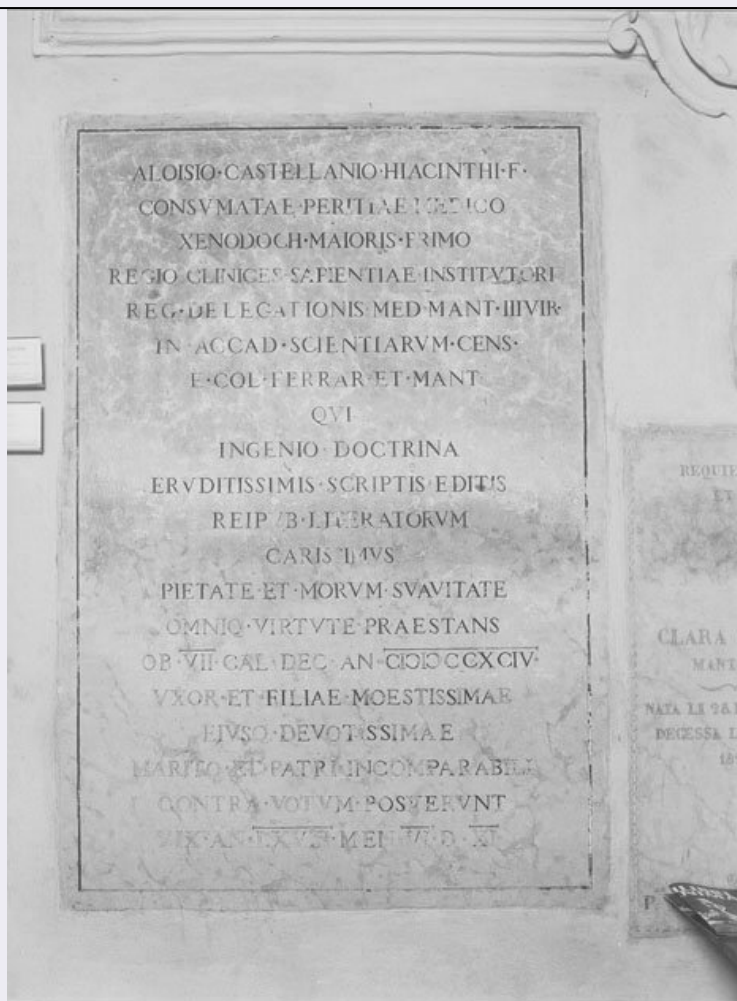 ALOISIO·CASTELLANIO·HIACINTHI·F·
CONSVMATAE·PERITIAE MEDICO
XENODOCH·MAIORIS·PRIMO
REGIO·CLINICES·SAPIENTIAE·INSTITVTORI
REG·DELEGATIONIS MED·MANT·IIIVIR·
IN ACCAD·SCIENTIARVM·CENS·
E·COL·FERRAR·ET·MANT·
QVI
INGENIO·DOCTRINA
ERVDITISSIMIS·SCRIPTIS·EDITIS
REIPVB·LITERATORVM
CARISSIMVS
PIETATE·ET·MORVM·SVAVITATE
OMNIQ·VIRTVTE·PRAESTANS
OB·VII·CAL·DEC·AN·CIↃIↃCCXCIV·
VXOR·ET·FILIAE·MOESTISSIMAE
EIVSQ·DEVOTISSIMAE
MARITO·ET·PATRI·INCOMPARABILI
CONTRA·VOTVM·POSVERVNT
VIX·AN·LXVII·MEN·VI·D·XI
REQUIE
ET
CLARA
MANT
NATA LI
DECESSA L
P.